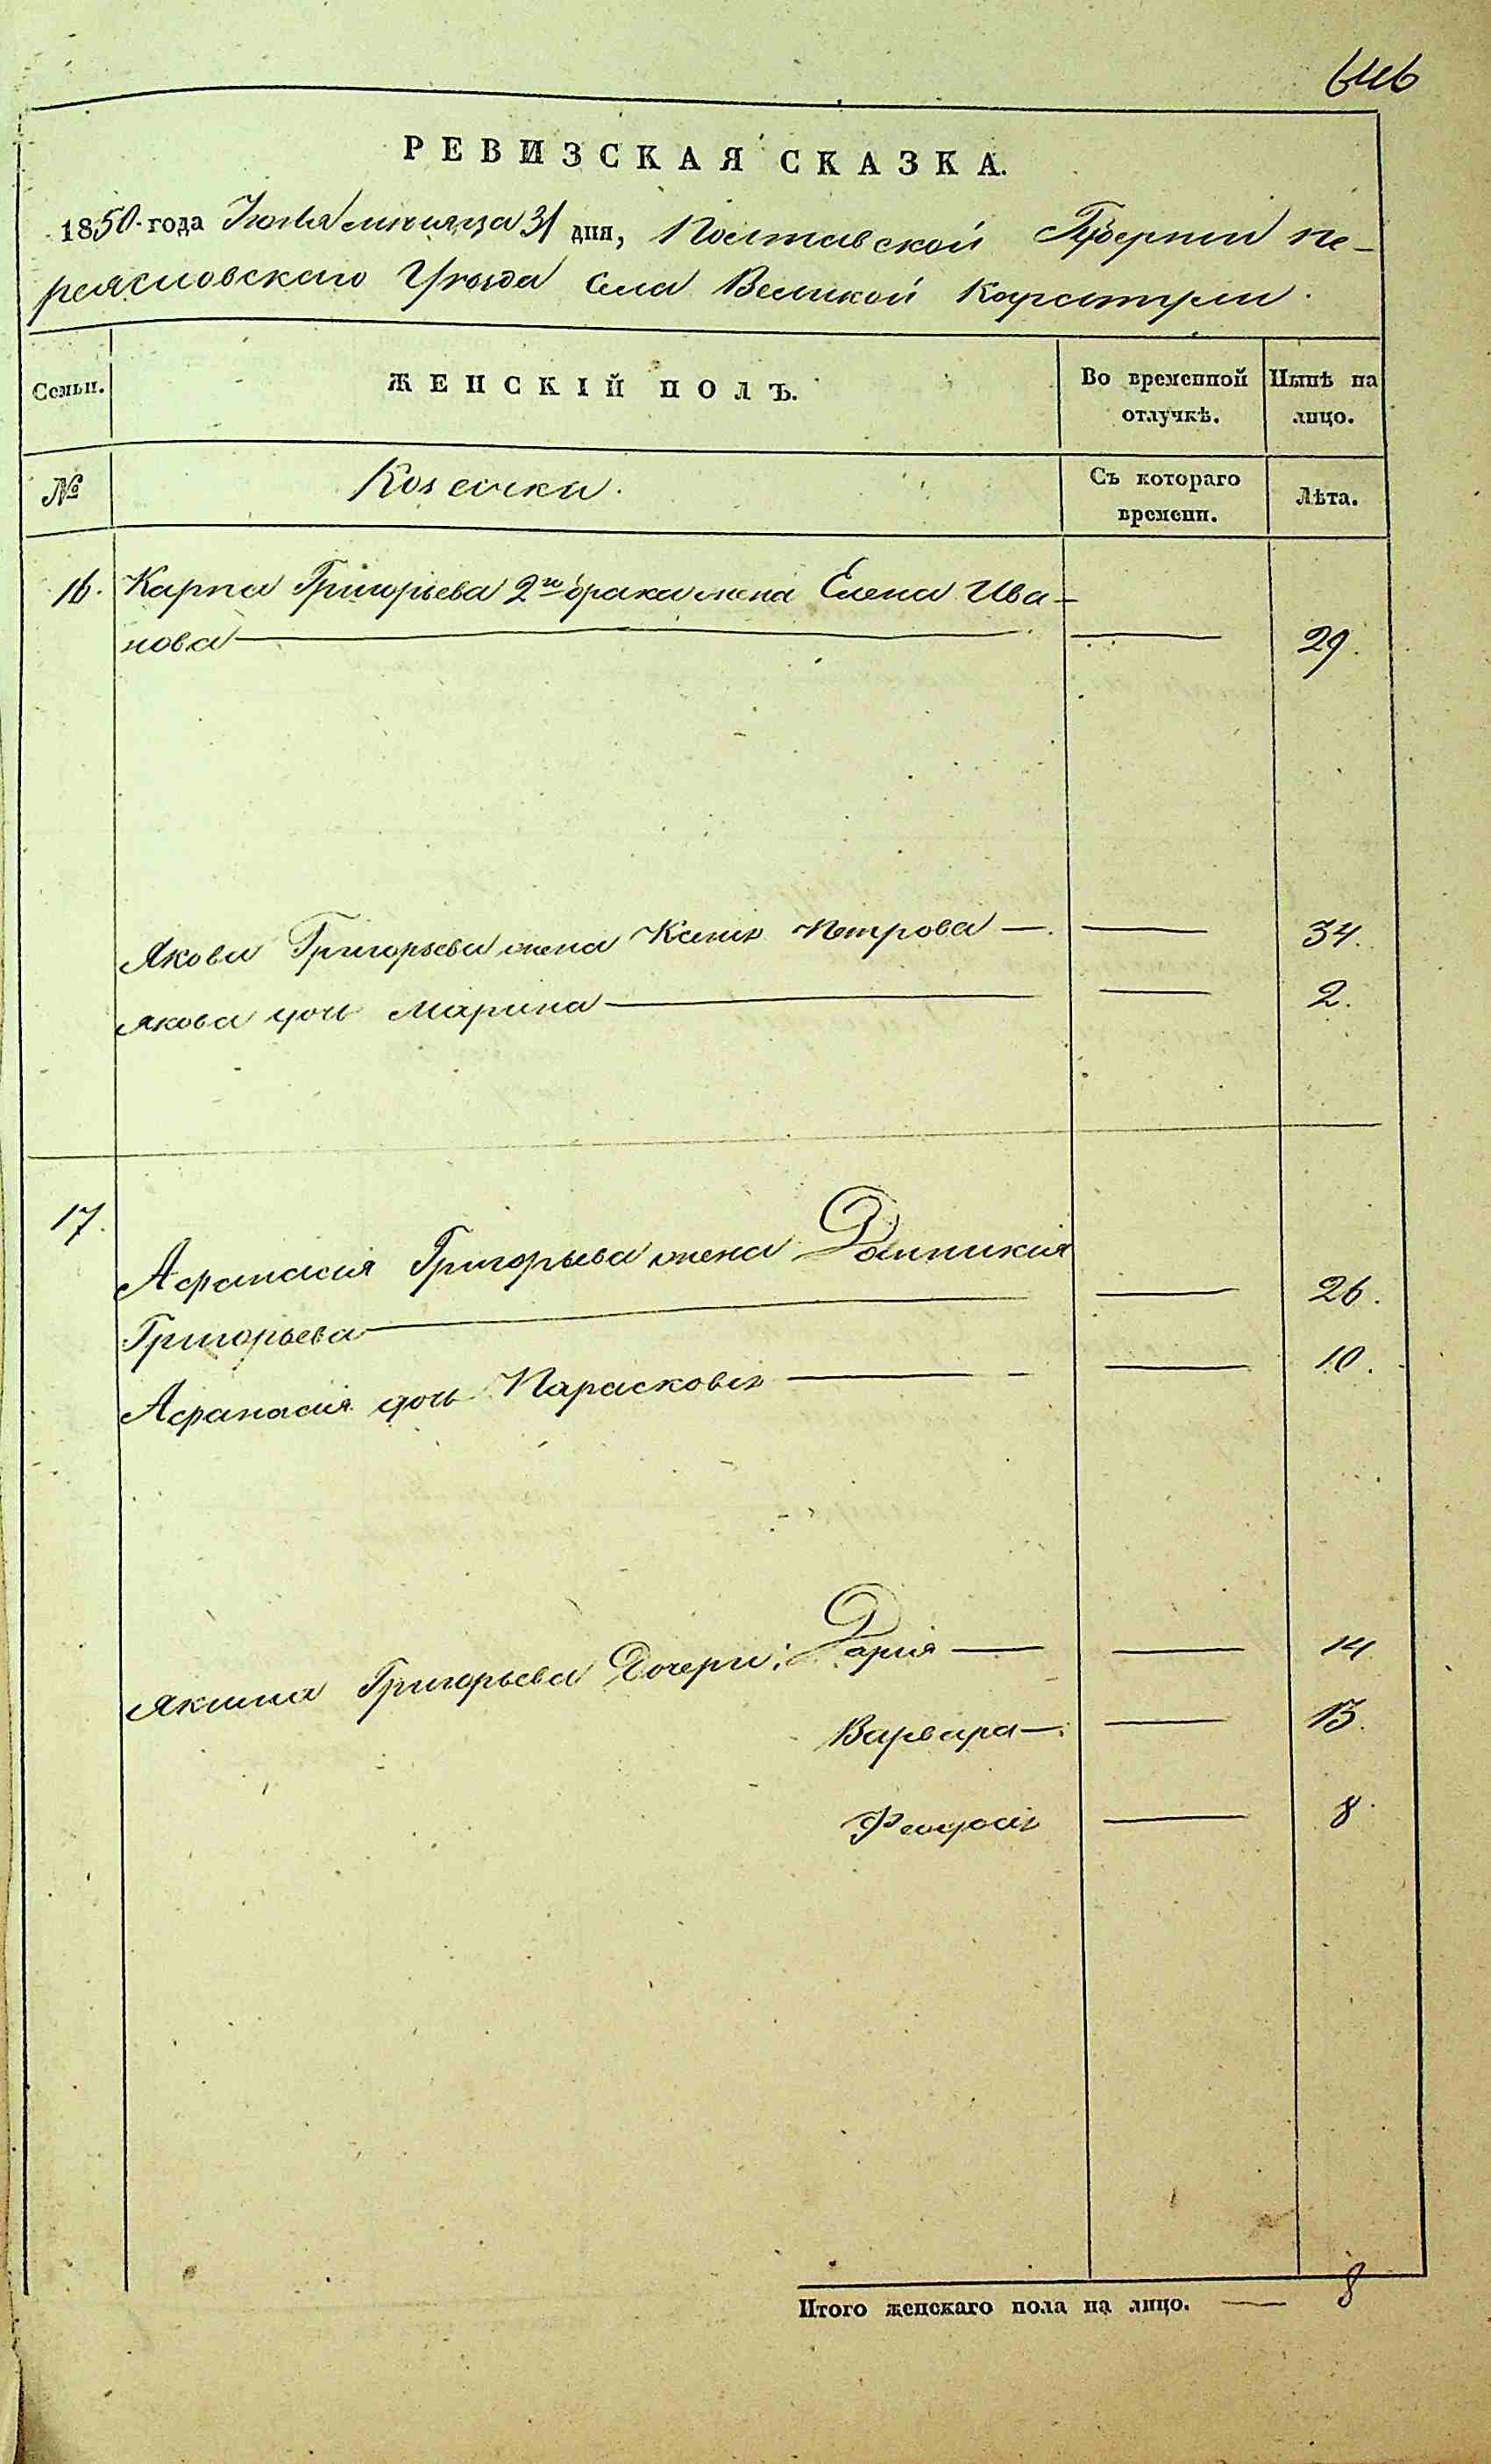 646
РЕВИЗСКАЯ СКАЗКА.
1850 года Июля месяца 31 дня, Полтавской Губернии пе-
реясловскаго Уезда Села Великой Каратули.
Семьи.
ЖЕНСКІЙ ПОЛЪ.
Во временной отлучкѣ.
Нынѣ на лицо.
№
Козачки.
Съ котораго времени.
Лѣта.
16. Карпа Григорьева 2го брака жена Елена Ива-
нова — — 29.
Якова Григорьева жена Ксенія Петрова — — 34.
Якова дочь Марина — — 2.
17.
Афанасия Григорьева жена Домникия
Григорьева — — 26.
Афанасия дочь Парасковія — — 10.
Якима Григорьева Дочери: Дария — — 14
Варвара — — 13.
Феодосія — 8.
Итого женскаго пола на лицо. — 8